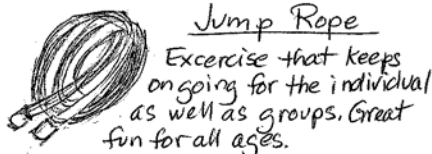 Jump Rope
Excercise that keeps
on going for the individual
as well as groups. Great
fun for all ages.